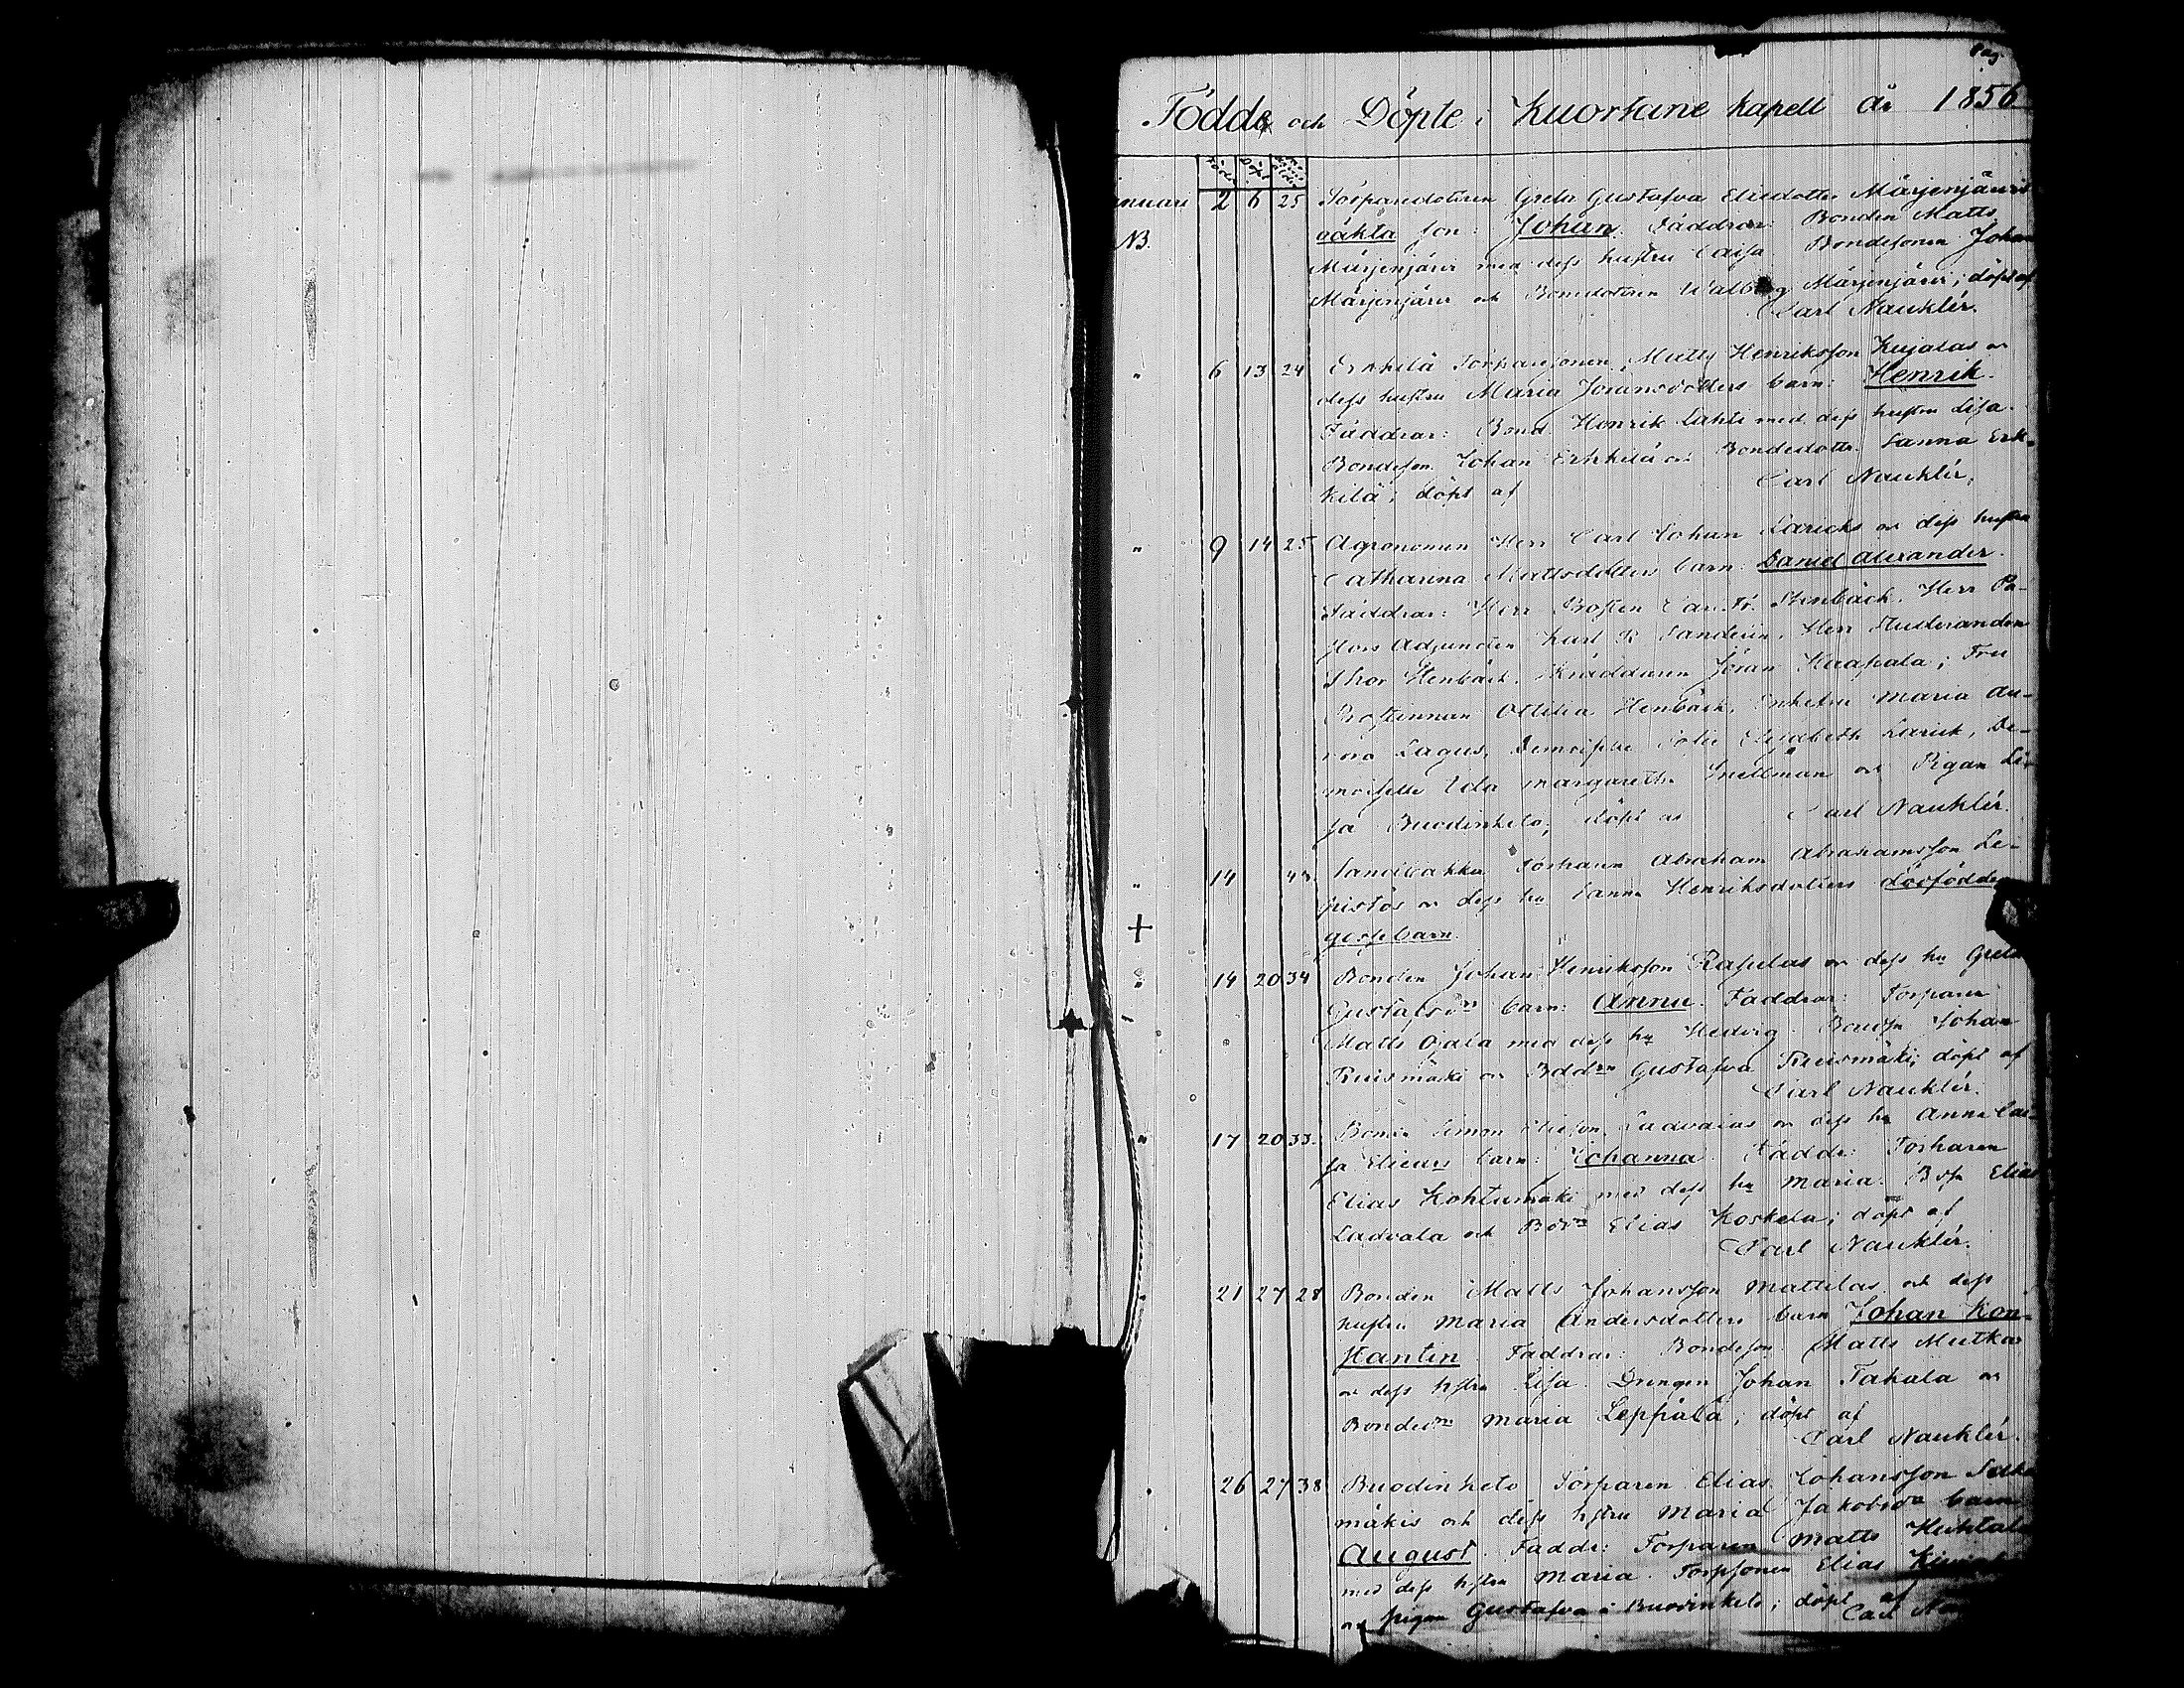 Pag.
Födde och Döpte i Kuortane Kapell år 1856
Född Döpt
Januari 2 6 25 Torparedottren Greta Gustafva Eliedotter Märjenjärvis
NB. oäkta son: Johan. Faddrar: Bonden Matts
Märjenjärvi med dess hustru Caisa. Bondesonen Johan
Märjenjärvi och Bondedottren Walborg Märjenjärvi; döpt af
Carl Nauklér.
" 6 13 24 Erkkilä Torparesonen Matts Henriksson Kujalas o.
dess hustru Maria Joransdotters barn: Henrik.
Faddrar: Bond. Henrik Lahti med dess hustru Lisa.
Bondeson Johan Erkkilä o. Bondedottr. Sanna Erk-
kilä; döpt af Carl Nauklér.
" 9 14 25 Agronomen Herr Carl Johan Laricks o. dess hustru
Catharina Mattsdotters barn: Daniel Alexander.
Faddrar: Herr Prosten Carl Fr. Stenbäck. Herr Pa-
stors Adjuncten Karl R Sandelin. Herr Studeranden
Thor Stenbäck. Skräddaren Jöran Kaapala; Fru
Prostinnan Ottilia Stenbäck. Enkefru Maria Au-
rora Lagus, Demoiselle Sofie Elisabeth Larick, De-
moiselle Ida Margareth. Snellman och Pigan Li-
sa Buodinkelo; döpt af Carl Nauklér.
" 14 43. Sandbakka Torparen Abraham Abrahamsson Le-
pistös o. dess hu Sanna Henriksdotters dödfödde
+ gossebarn.
" 14 20 34 Bonden Johan Henriksson Rapelas o. dess hu Greta
Gustafsdrs barn: Anna. Faddrar: Torparen
Matts Ojala med dess hu Hedvig. Bondsn Johan
Ruismäki o. Bddrn Gustafva Ruismäki; döpt af
Carl Nauklér.
" 17 20 33. Bonden Simon Eliesson Ladvalas o. dess hu Anna Cai-
sa Eliedrs barn: Johanna. Faddr: Torparen
Elias Kohtamäki med dess hu Maria. Bsn Elias
Ladvala och Bdrn Elias Koskela; döpt af
Carl Nauklér.
" 21 27 28 Bonden Matts Johansson Mattilas och dess
hustru Maria Andersdotters barn Johan Kon-
stantin. Faddrar: Bondeson Matts Mutka
o. dess hstru Lisa. Drengen Johan Takala o.
Bondedrn Maria Leppälä; döpt af
Carl Nauklér.
26 27 38 Buodinkelo Torparen Elias Johansson
mäkis och dess hstru Maria Jakobsdrs barn
August. Faddr: Torparen Matts Huhtala
med dess hstru Maria. Torpsonen Elias
och pigan Gustafva i Buodinkelo; döpt af
Carl